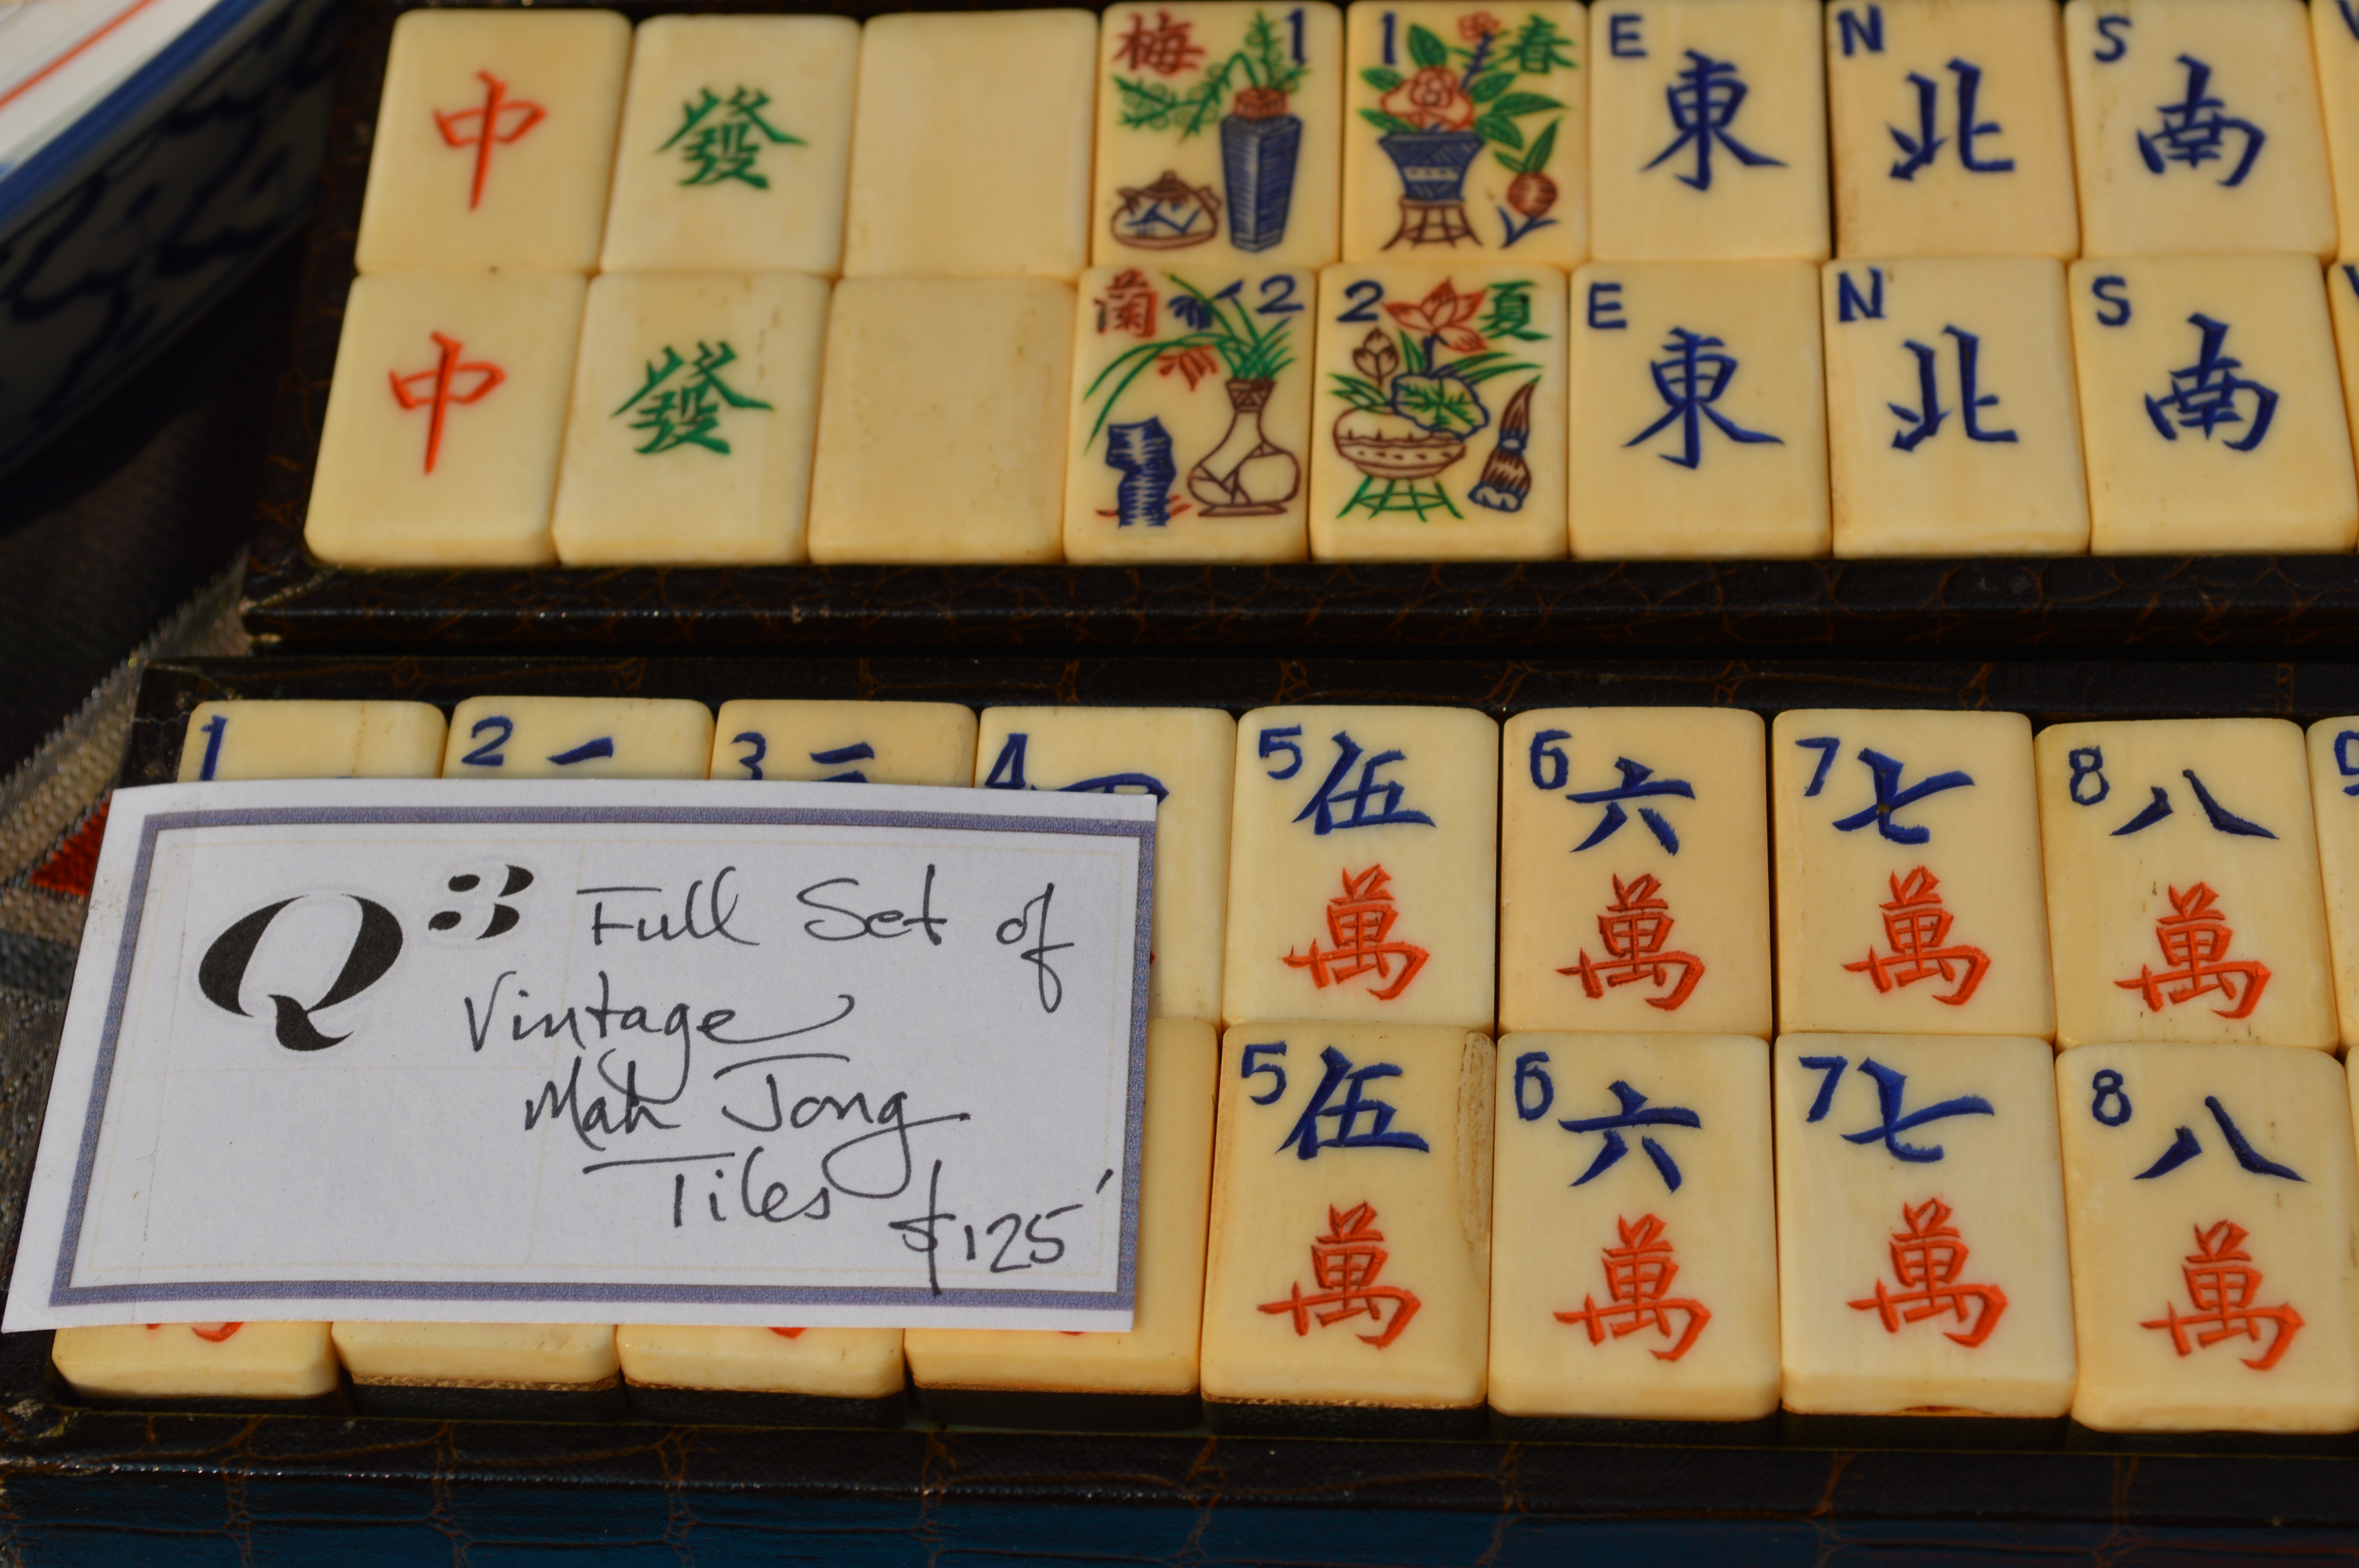 中 發 梅 1 1 春 E 東 N 北 S 南
中 發 蘭 2 2 夏 E 東 N 北 S 南
1 2 3 4 5 伍 萬 6 六 萬 7 七 萬 8 八 萬 9
5 伍 萬 6 六 萬 7 七 萬 8 八 萬
Q3 Full Set of
Vintage
Mah Jong
Tiles
$125